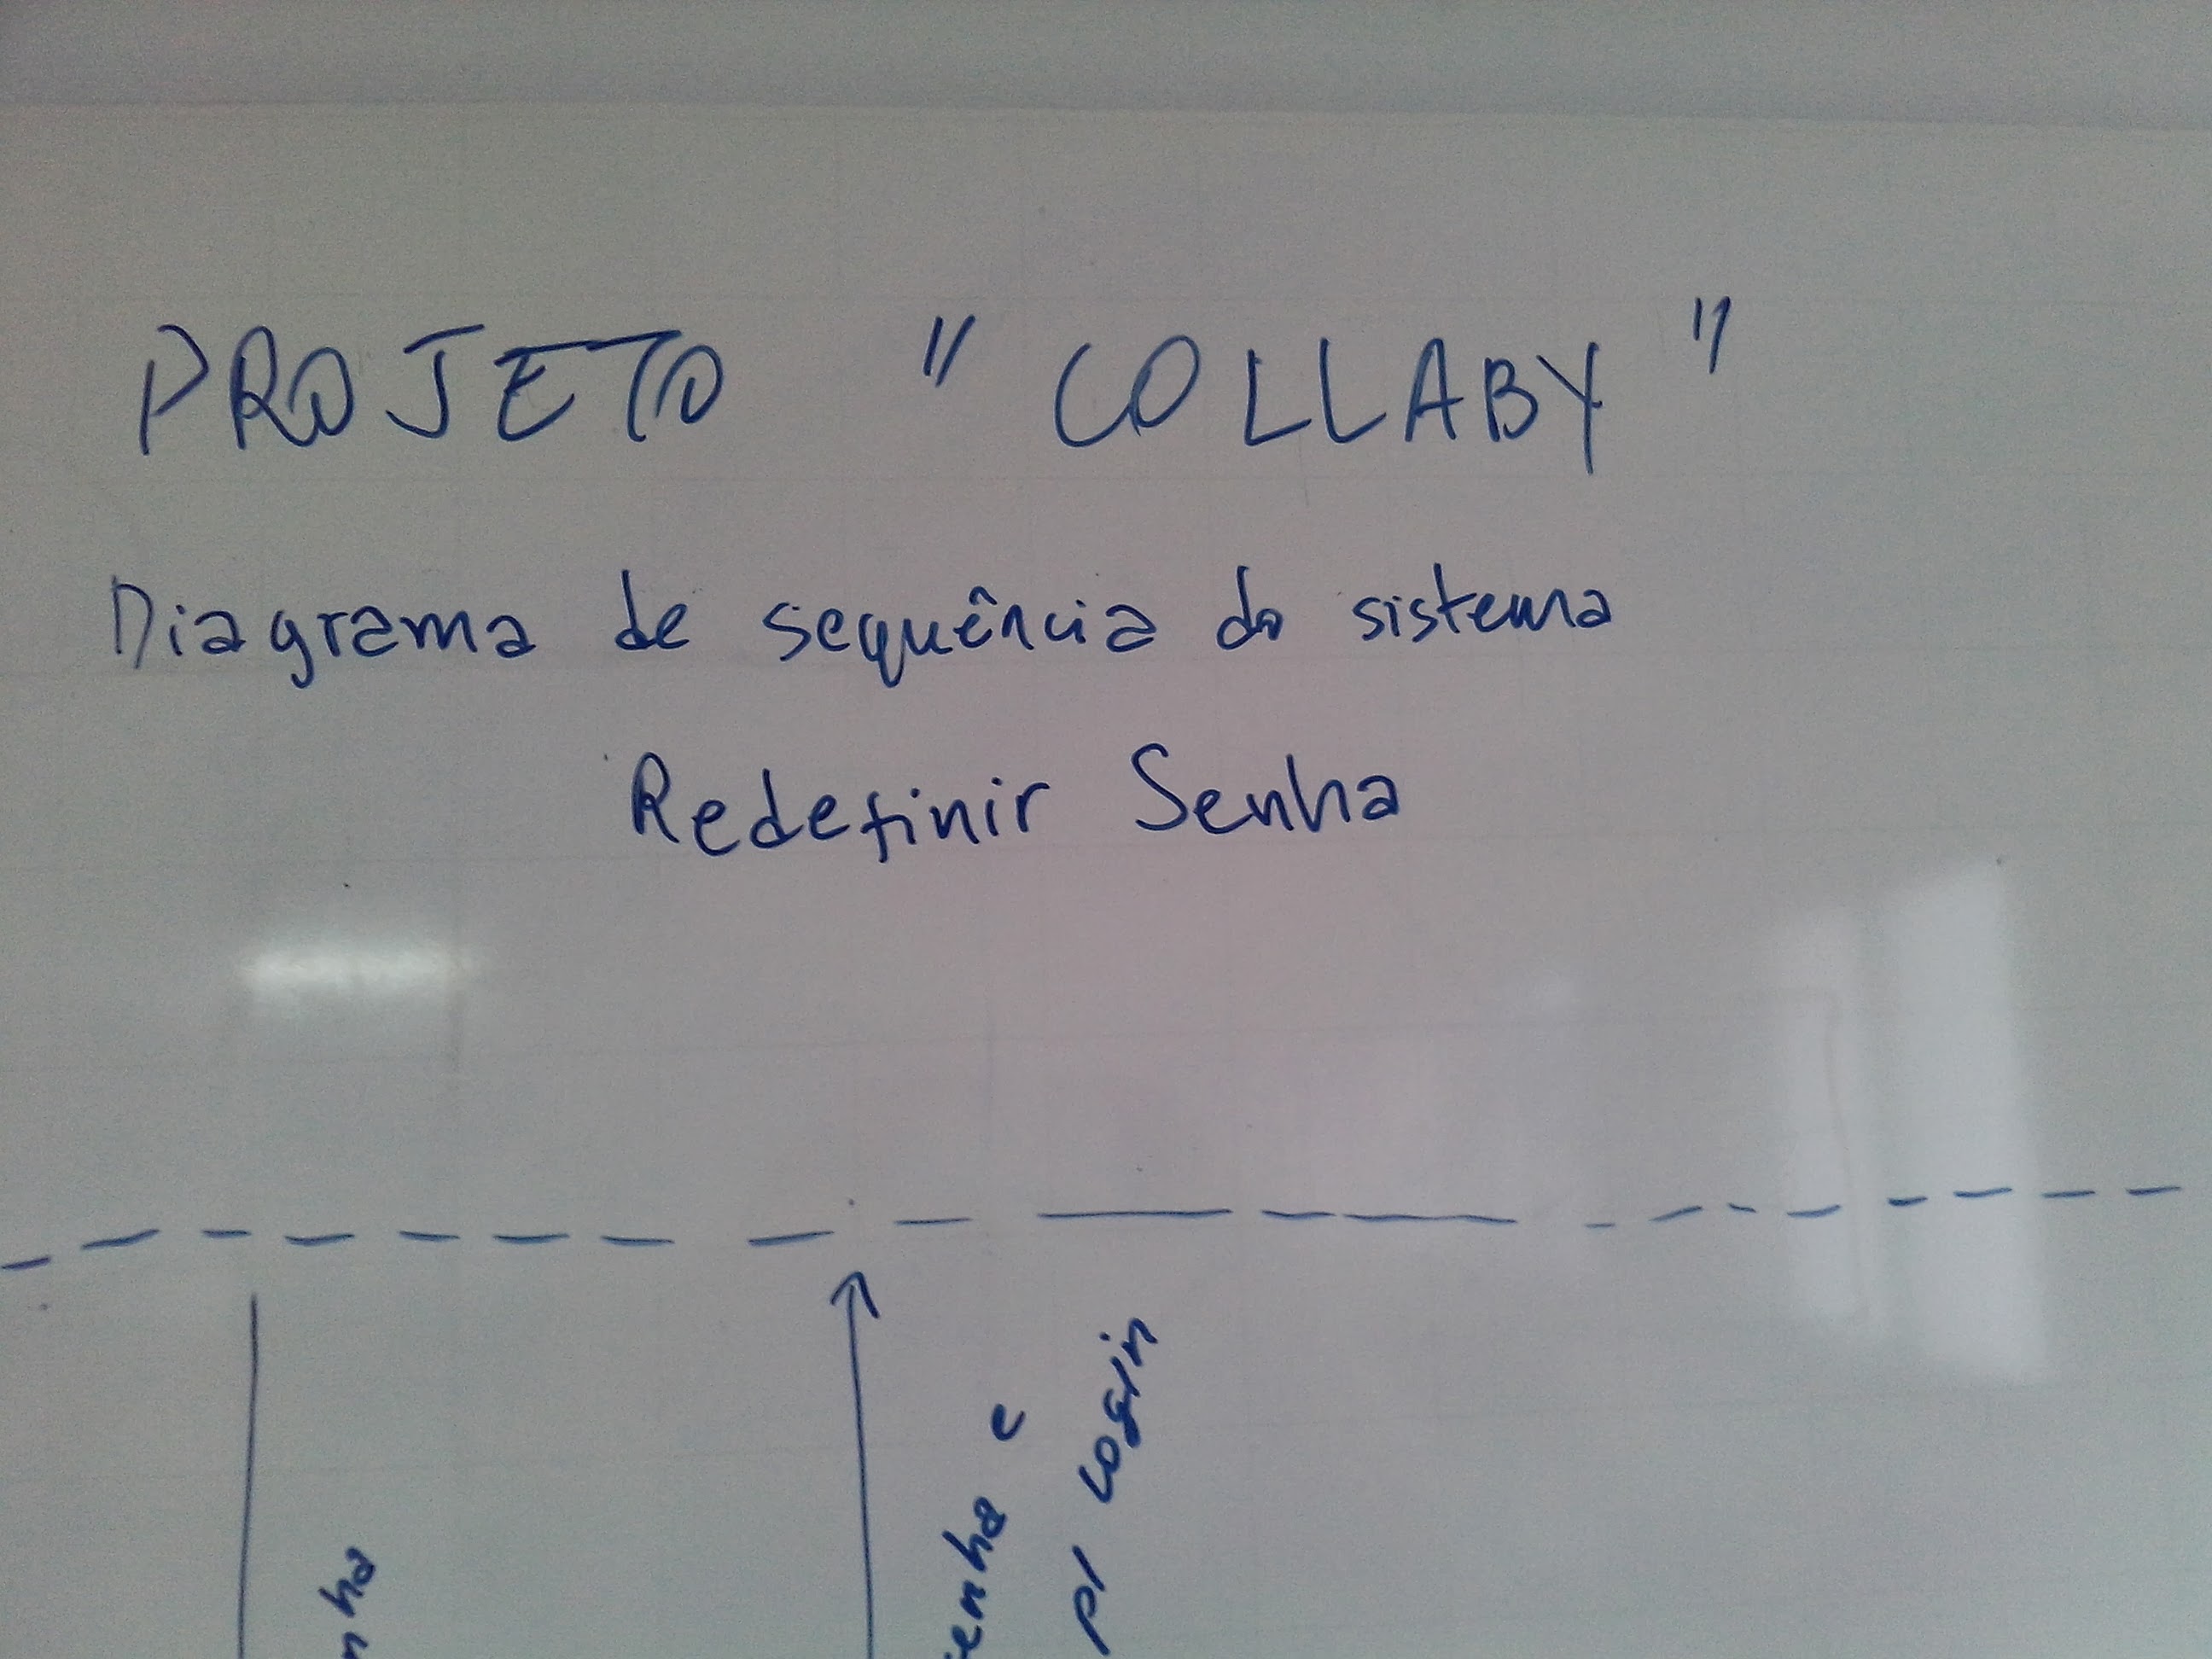 PROJETO "COLLABY"
Diagrama de sequência do sistema
Redefinir Senha
nha
enha e
p/ login